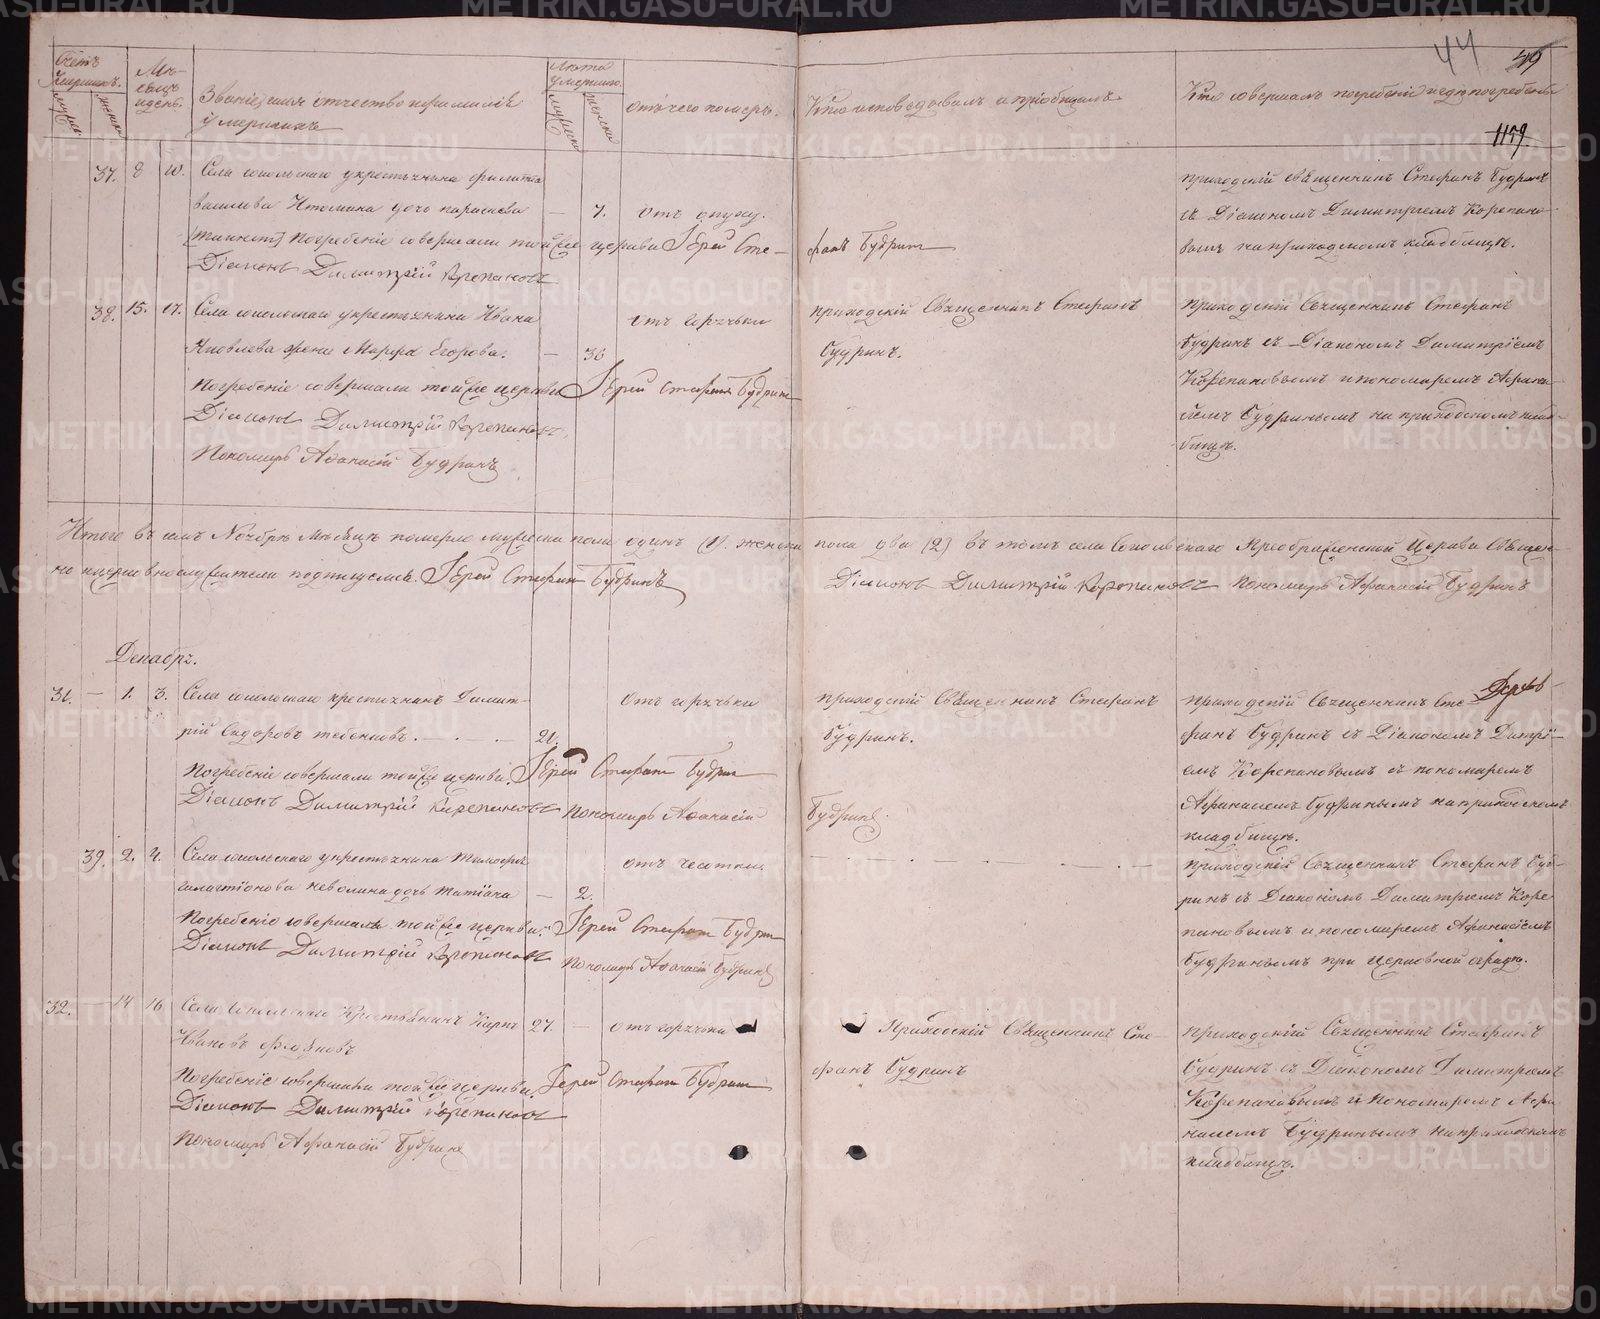 44
49
1159.
Счетъ умершихъ.
Мѣсяцъ и день.
Званіе, имя, отчество и фамилія умершихъ
Лѣта умершаго.
Отъ чего померъ.
Кто исповѣдывалъ и пріобщалъ
Кто совершалъ погребеніе и гдѣ погребены
37. 8 10. Села Сокольскаго у крестьянина Филиппа
приходскій священникъ Стефанъ Будринъ
дочь — 7.
съ Діакономъ Димитріемъ Корепано-
вымъ на приходскомъ кладбищѣ.
Погребеніе совершали той же церкви Іерей Сте-
фанъ Будринъ
Діаконъ Димитрій Корепановъ
38. 15. 17. Села Сокольскаго у крестьянина Ивана
отъ горячки
приходскій Священникъ Стефанъ
Приходскій Священникъ Стефанъ
Яковлева жена Марфа Егорова. — 36
Будринъ.
Будринъ съ Діакономъ Димитріемъ
Погребеніе совершали той же церкви Іерей Стефанъ Будринъ
Корепановымъ и пономаремъ Афана-
Діаконъ Димитрій Корепановъ
сіемъ Будринымъ на приходскомъ клад-
Пономарь Афанасій Будринъ
бищѣ.
Итого въ семъ Ноябрѣ мѣсяцѣ померло мужеска пола одинъ (1). женска пола два (2) въ томъ села Сокольскаго Преображенской Церкви Священ-
но и церковнослужители подпишемся. Іерей Стефанъ Будринъ
Діаконъ Димитрій Корепановъ Пономарь Афанасій Будринъ
Декабрь.
31. — 1. 3. Села Сокольскаго крестьянинъ Димит-
отъ горячки
приходскій Священникъ Стефанъ
приходскій Священникъ Сте-
рій Сидоровъ 21.
Будринъ.
фанъ Будринъ съ Діакономъ Дитрі-
Погребеніе совершали той же церкви. Іерей Стефанъ Будринъ
емъ Корепановымъ и пономаремъ
Діаконъ Димитрій Корепановъ Пономарь Афанасій
Будринъ.
Афанасіемъ Будринымъ на приходскомъ
кладбищѣ.
39. 2. 4. Села Сокольскаго у крестьянина Тимофея
приходскій Священникъ Стефанъ Буд-
Неволина дочь Татіана — 2.
ринъ съ Діакономъ Димитріемъ Коре-
Погребеніе совершали той же церкви. Іерей Стефанъ Будринъ
пановымъ и пономаремъ Афанасіемъ
Діаконъ Димитрій Корепановъ
Пономарь Афанасій Будринъ
Будринымъ при церковной оградѣ.
32. — 14 16 Села Сокольскаго Крестьянинъ Карпъ 27. —
отъ горячки
Приходскій Священникъ Сте-
приходскій Священникъ Стефанъ
Ивановъ
фанъ Будринъ
Будринъ съ Діакономъ Димитріемъ
Погребеніе совершали той же церкви. Іерей Стефанъ Будринъ
Корепановымъ и Пономаремъ Афа-
Діаконъ Димитрій Корепановъ
насіемъ Будринымъ на приходскомъ
Пономарь Афанасій Будринъ
кладбищѣ.
METRIKI.GASO-URAL.RU